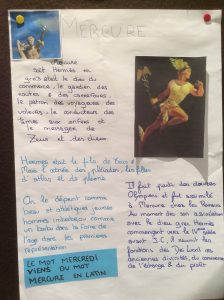 MERCURE
Mercure
soit Hermès en
grec était le dieu du
commerce, le gardien des
routes et des carrefours,
le patron des voyageurs des
voleurs, le conducteur des
âmes aux enfers et
le messager de
Zeus et des dieux.
Hermès était le fils de Zeus et
Maia l'aînée des pléiades, les filles
d'atlas et de pleione
On le dépeint comme
beau et athlétique jeune
homme imberbe ou comme
un barbu dans la force de
l'age dans les premières
représentation
LE MOT MERCREDI
VIENS DU MOT
MERCURE EN LATIN
Il fait partie des divinités
Olympiens et fut assimilé
à Mercure chez les Romains
Au moment de son assimilation
avec le dieu grec Hermès
commençant vers le IVème siècle
avant J.C. Il réunit les
fonctions des Dei lucrii des
anciennes divinités, du commerce
de l'échange & du profit